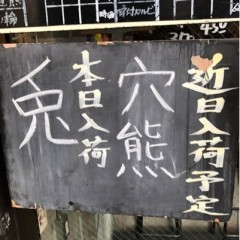 近日入荷予定
穴熊
本日入荷
兎